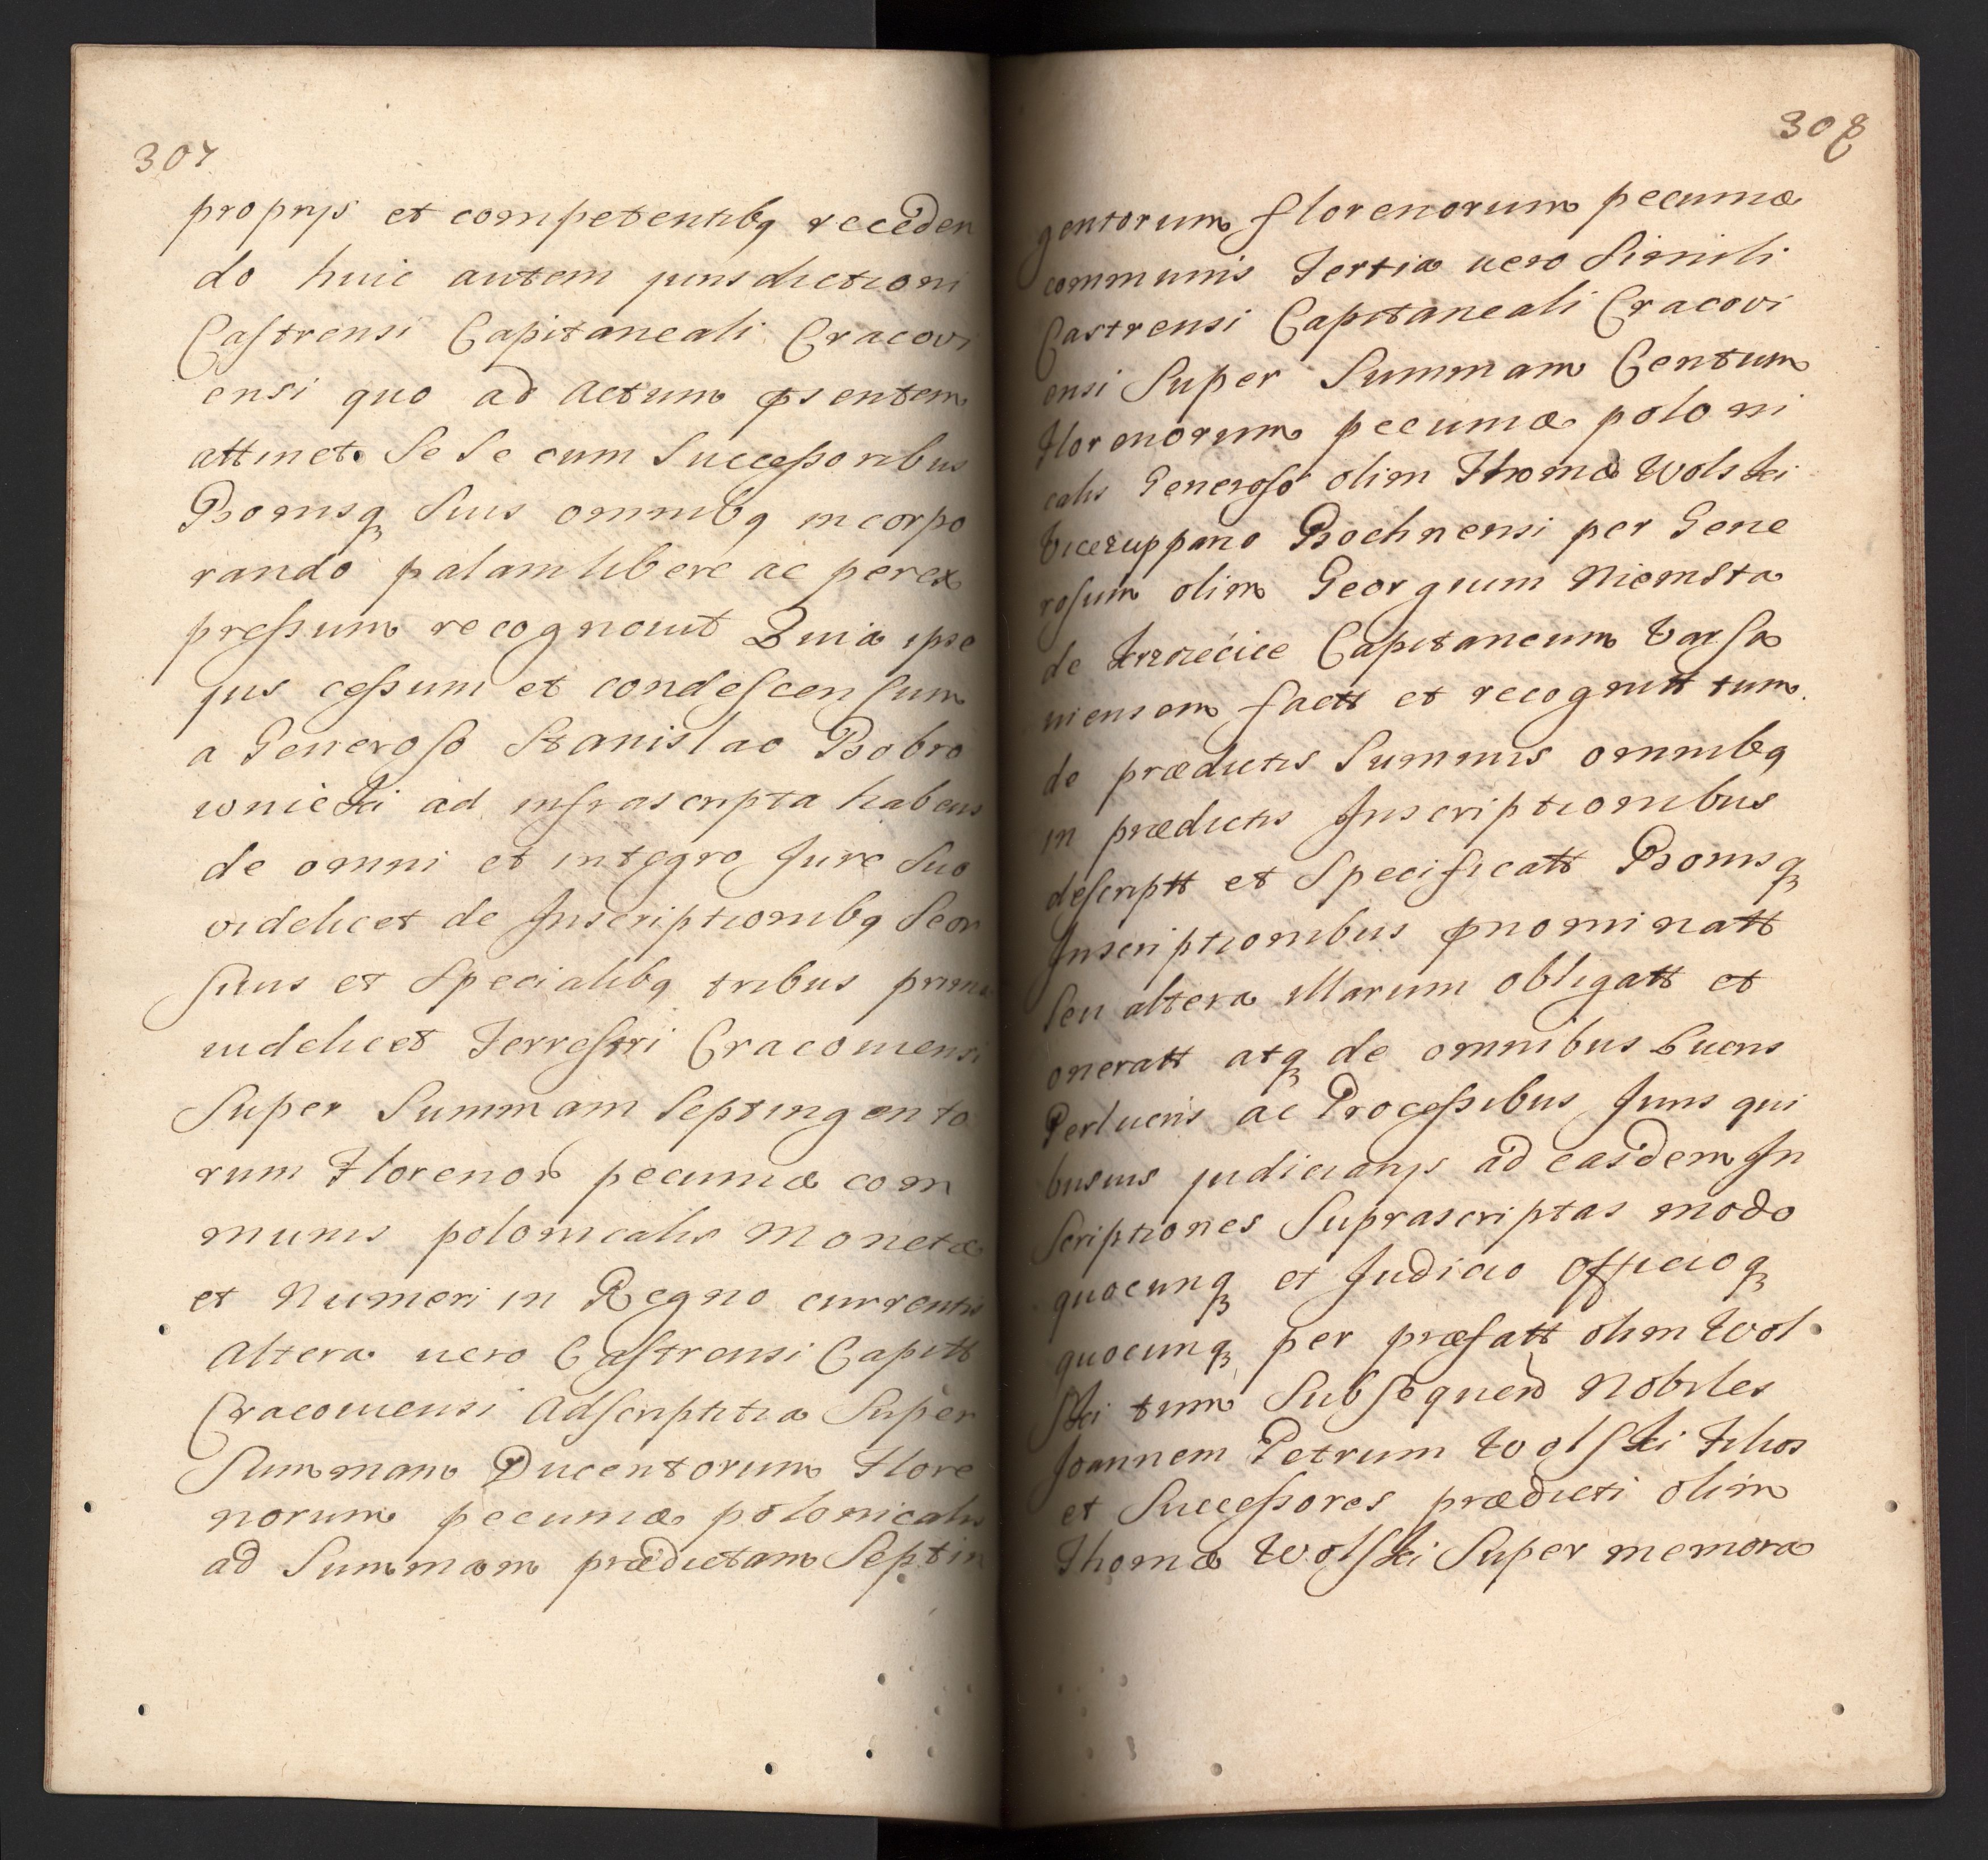 307
proprijs et competentibq receden
do huic autem jurisdictioni
Castrensi Capitaneali Cracovi
ensi quo ad actum pšentem
attinet Se Se cum Successoribus
Bonisq Suis omnibq incorpo
rando palam libere ac perex
pressum recognouit Quia ipse
jus cessum et condescensum
a Generoso Stanislao Bobro
wnicki ad infrascripta habens
de omni et integro Jure Suo
videlicet de Inscriptionibq Seor
siuis et Specialibq tribus prima
uidelicet Terrestri Cracouiensi
Super Summam Septingento
rum Florenor pecuniæ com
munis polonicalis Monetæ
et Numeri in Regno currentis
Altera uero Castrensi Capitt
Cracouiensi Adscriptitia Super
Summam Ducentorum Flore
norum pecuniæ polonicalis
ad Summam prædictam Septin
308
gentorum florenorum pecuniæ
communis Tertia uero Simili
Castrensi Capitaneali Cracovi
ensi Super Summam Centum
Florenorum pecuniæ poloni
calis Generoso olim Thomæ Wolski
Vicezuppano Bochnensi per Gene
rosum olim Georgium Niemsta
de Krzcięcice Capitaneum Varsa
uiensem factt et recognitt tum
de prædictis Summis omnibq
in prædictis Inscriptionibus
descriptt et Specificatt Bonisq
Inscriptionibus pnominatt
Seu altera illarum obligatt et
oneratt atq de omnibus Lucris
Perlucris ac Processibus Juris qui
busuis judiciarijs ad easdem In
Scriptiones Suprascriptas modo
quocunq et Judicio Officioq
quocunq per præfatt olim Wol
ski tum Subsequen Nobiles
Joannem Petrum Wolski Filios
et Successores prædicti olim
Thomæ Wolski Super memora